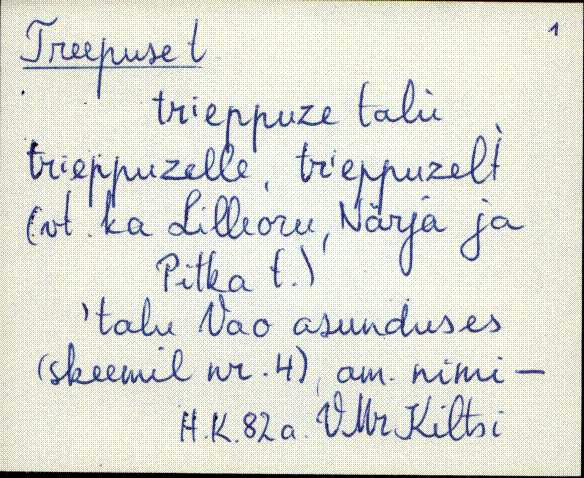 1
Treepuse t
trieppuze talu
trieppuzelle, trieppuzelt
(vt. ka Lilleoru, Närja ja
Pitka t.)
'talu Vao asunduses
(skeemil nr. 4), am. nimi –
H.K. 82 a. VMr Kiltsi